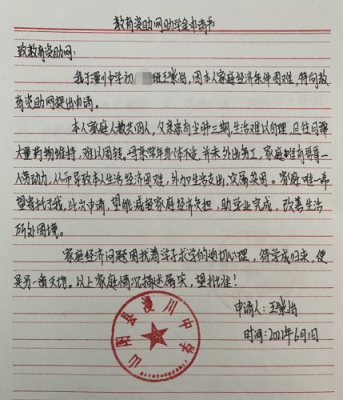 教育资助网助学金申请书
致教育资助网:
我于漫川中学初 班王紫怡,因本人家庭经济条件困难,特向教
育资助网提出申请。
本人家庭人数共四人,父亲患尚尘肺三期,生活难以自理,且往日需
大量药物维持,难以周转。母亲常年身体不适,并未外出务工,家庭唯有哥哥一
人劳动力,从而导致本人生活经济困难,外加生活支出,交属实困。家庭唯一希
望寄托于我,此次申请,望能减轻家庭经济负担,助学业完成,改善生活
所处困境。
家庭经济问题困扰着学子求学的迫切心理,待学成归来,便
是另一番天地。以上家庭情况描述属实,望批准!
申请人:王紫怡
时间:2021年6月1日
山阳县漫川中学